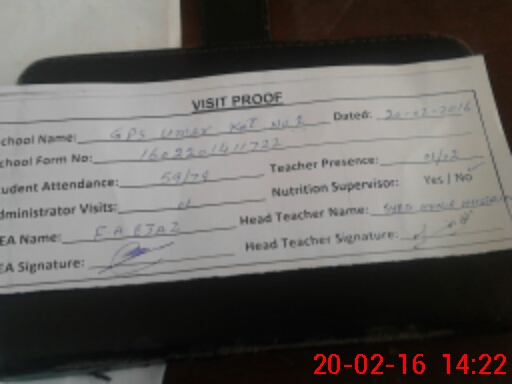 VISIT PROOF
chool Name: GPS Umar Kot No 2 Dated: 20-02-2016
chool Form No: 1602201411722
udent Attendance: 59/79 Teacher Presence: 01/02
dministrator Visits: 01 Nutrition Supervisor: Yes / No
EA Name: Head Teacher Name: SYED
EA Signature: Head Teacher Signature:
20-02-16 14:22